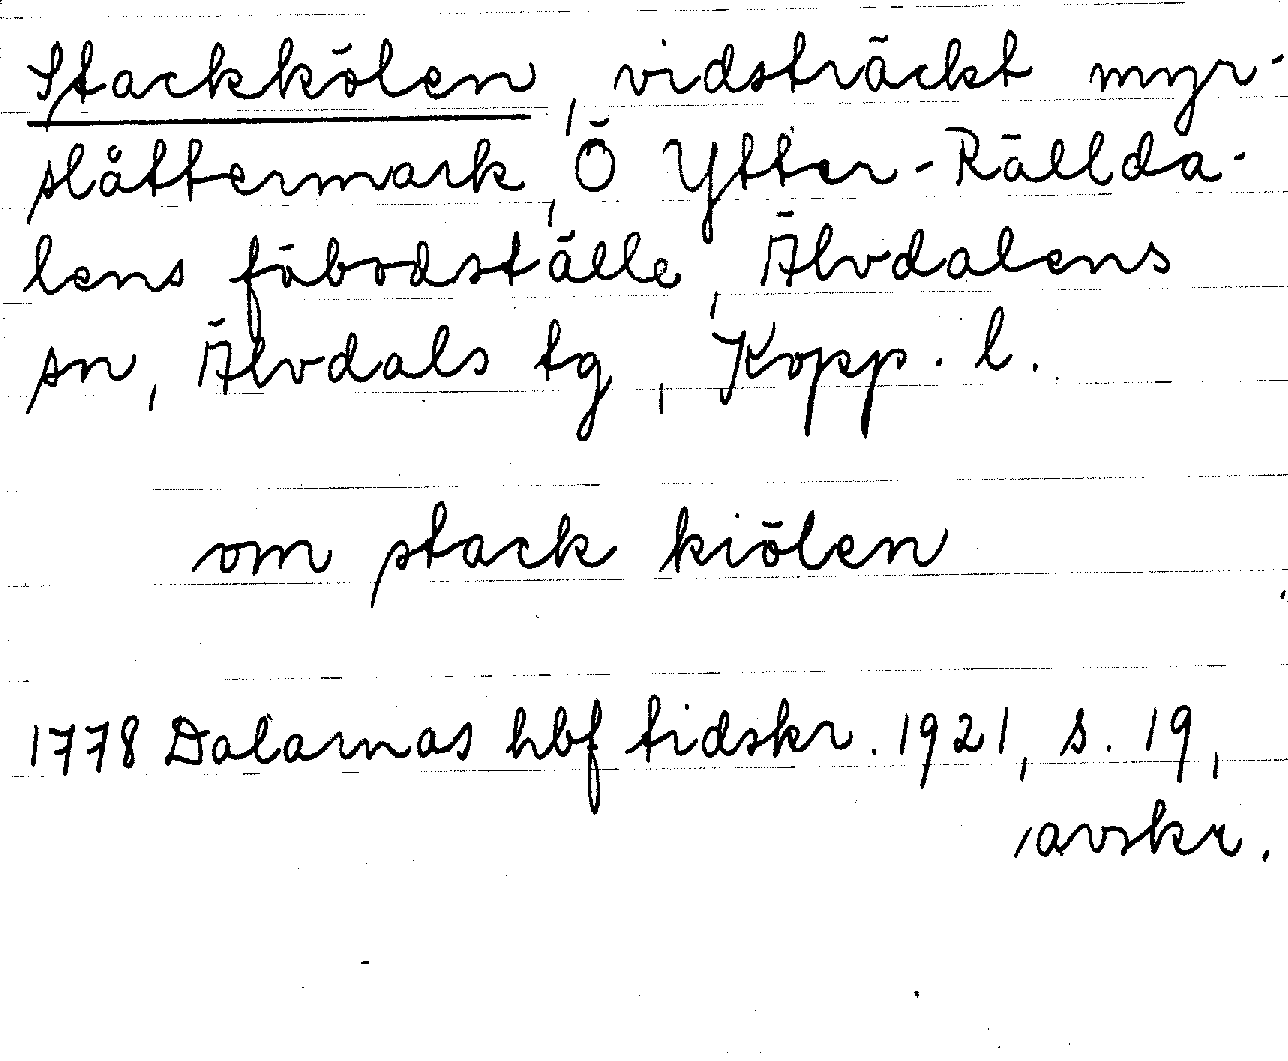 Stackkölen, vidsträckt myr-
slåttermark, Ö Ytter-Rällda-
lens fäbodställe, Älvdalens
sn, Älvdals tg, Kopp. l.
om stack kiölen
1778 Dalarnas hbf tidskr. 1921, s. 19,
avskr.